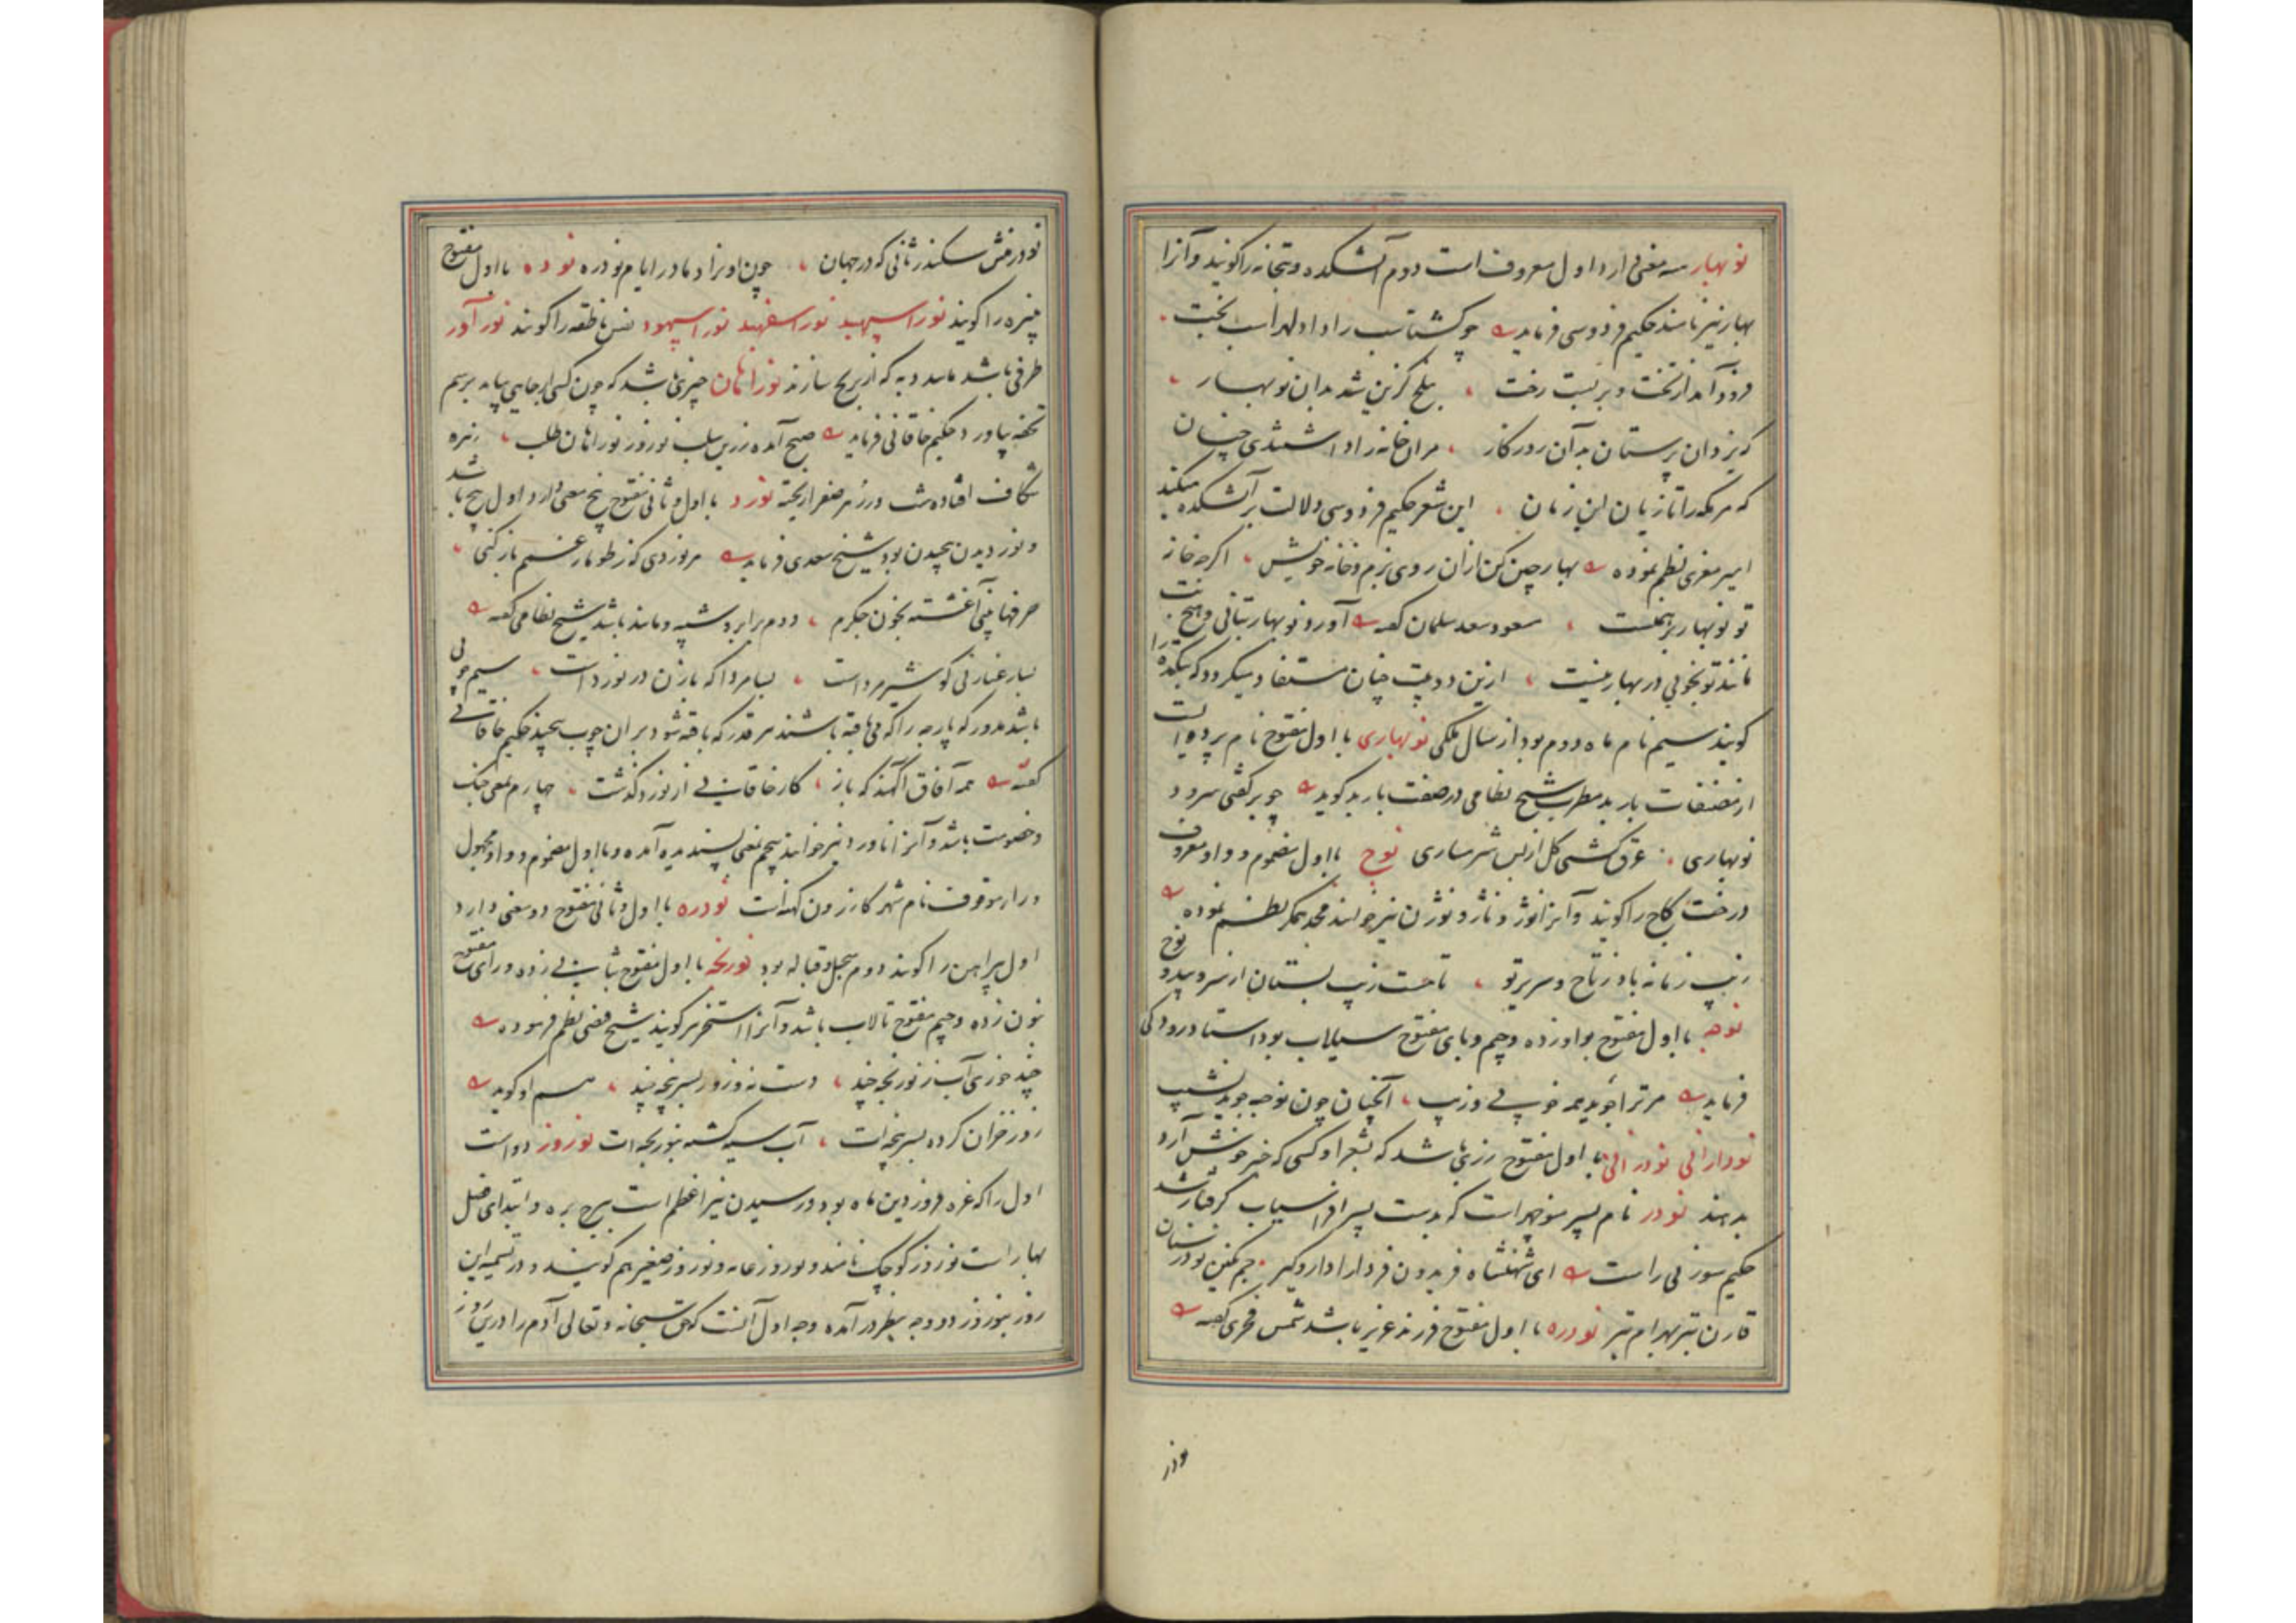 نوبهار سه معنی دارد اول معروف است دوم آتشکده و بتخانه را گویند و آنرا
بهار نیز نامند حکیم فردوسی فرماید چو گشتاسب را داد لهراسب تخت
فرود آمد از تخت و بربست رخت بلخ گزین شد بدان نوبهار
که یزدان پرستان بدآن روزگار مران خانه را داشتندی چنان
که مر مکه را تازیان این زمان این شعر حکیم فردوسی دلالت بر آتشکده میکند
امیر معزی نظم نموده بهار چین کن ازان روی بزم خانه خویش اگرچه خانه
تو نوبهار برهمنست مسعود سعد سلمان گفته آورد نوبهار بتانی و هیچ بت
مانند تو بخوبی در بهار نیست ازین دو بیت چنان مستفاد میگردد که بتکده را
گویند سیم نام ماه دوم بود از سال ملکی نوبهاری با اول مفتوح نام پرده ایست
از مصنفات باربد مطرب شیخ نظامی در صفت باربد گوید چو بر گفتی سرود
نوبهاری عرق گشتی گل از بس شرمساری نوج با اول مضموم و واو معروف
درخت کاج را گویند و آنرا نوژ و ناژ و نوژن نیز خوانند مجد همگر نظم نموده
زیب زمانه باد ز تاج و سریر تو تاهست زیب بستان از سرو بید و نوج
نوجبه با اول مفتوح بواو زده و جیم و بای مفتوح سیلاب بود استاد رودکی
فرماید مر ترا جوید همه خوبی و زیب آنچنان چون نوجبه جوید نشیب
نودارانی نودرانی با اول مفتوح زری باشد که بشعرا و کسی که خبر خوش آرد
بدهند نودر نام پسر منوچهر است که بدست پسر افراسیاب گرفتار شد
حکیم سوزنی راست ای شهنشاه فریدون فر دارا دار و گیر جم نگین نودر سنان
قارن تیر بهرام تیر نودره با اول مفتوح فرزند عزیز باشد شمس فخری گفته
نودر
نودر منش سکندر ثانی که در جهان چون او نزاد مادر ایام نودره نوده با اول مفتوح
نبیره را گویند نور اسپهبد نور اسفهبد نور اسپهبود نفس ناطقه را گویند نور آور
ظرفی باشد مانند دبه که از برنج سازند نوراهان چیزی باشد که چون کسی از جایی بیاید برسم
تحفه بیاورد حکیم خاقانی فرماید صبح آمده زرین سلب نوروز نوراهان طلب زهره
شکاف افتاده شب وز زهره صفرا ریخته نورد با اول و ثانی مفتوح پنج معنی دارد اول پیچ باشد
و نوردیدن پیچیدن بود شیخ سعدی فرماید هر نوردی که ز طومار غمم باز کنی
حرفها بینی آغشته بخون جگرم دوم برابر و شبیه و مانند باشد شیخ نظامی گفته
بسا رعنا زنی کو شیر مرد است بسا مردا که با زن در نورد است سیم چوبی
باشد مدور که پارچه را که می بافته باشند هر قدر که بافته شود بران چوب پیچند حکیم خاقانی
گفته همه آفاق آگهند که باز کار خاقانی از نورد گذشت چهارم بمعنی جنگ
و خصومت باشد و آنرا ناورد نیز خوانند پنجم بمعنی پسندیده آمده و با اول مضموم و واو مجهول
و را موقوف نام شهر کازرون کهنه است نورده با اول و ثانی مفتوح دو معنی دارد
اول پیراهن را گویند دوم سجل و قباله بود نورنجه با اول مفتوح بثانی زده و رای مفتوح
بنون زده و جیم مفتوح تالاب باشد و آنرا استخر گویند شیخ فیضی نظم فرموده
چند خوری آب ز نورنجه چند دست نه و زور بسرپنجه چند هم او گوید
روز خزان کرده بسرپنجه ات آب سیه گشته بنورنجه ات نوروز دو است
اول را که غره فروردین ماه بود و رسیدن نیر اعظم است ببرج بره و ابتدای فصل
بهار است نوروز کوچک نامند و نوروز عامه و نوروز صغیر هم گویند و در تسمیه این
روز بنوروز دو وجه بنظر در آمده وجه اول آنست که حق سبحانه و تعالی آدم را درین روز